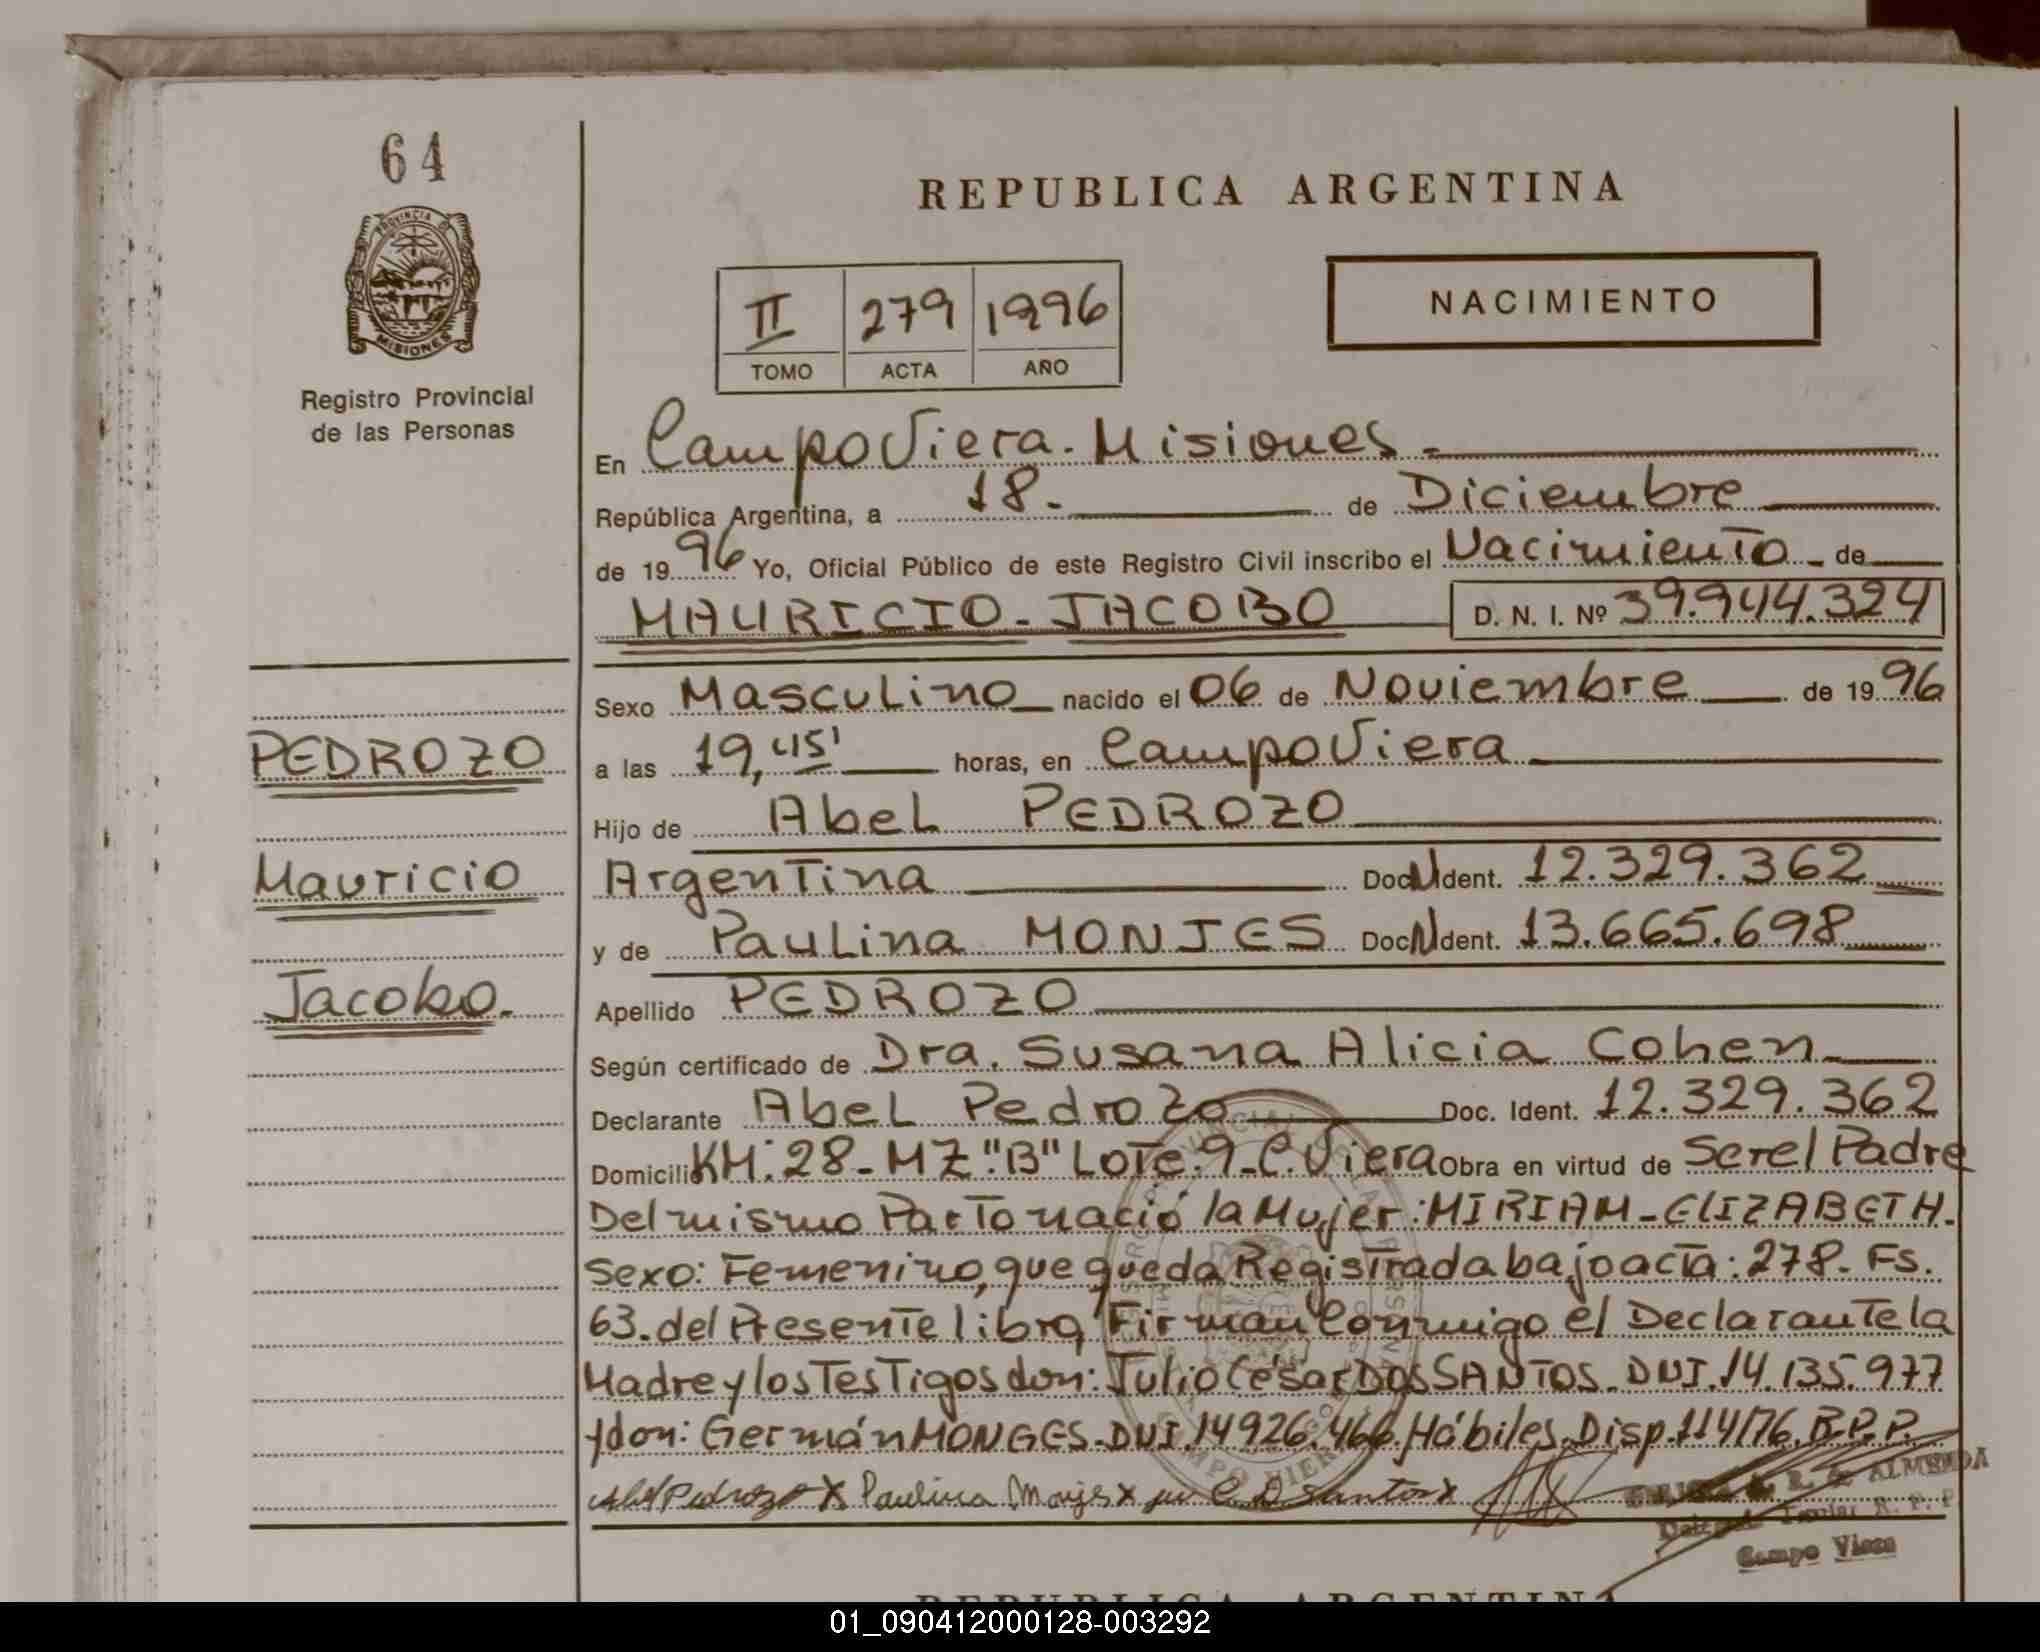 64
PROVINCIA DE
MISIONES
Registro Provincial
de las Personas
PEDROZO
Mauricio
Jacobo.
REPUBLICA ARGENTINA
II 279 1996
TOMO ACTA AÑO
NACIMIENTO
En Campo Viera. Misiones.
República Argentina, a 18. de Diciembre
de 1996 Yo, Oficial Público de este Registro Civil inscribo el Nacimiento de
MAURICIO-JACOBO D. N. I. Nº 39.944.324
Sexo Masculino nacido el 06 de Noviembre de 1996
a las 19,45' horas, en Campo Viera
Hijo de Abel PEDROZO
Argentina Doc. Ident. 12.329.362
y de Paulina MONJES Doc. Ident. 13.665.698
Apellido PEDROZO
Según certificado de Dra. Susana Alicia Cohen
Declarante Abel Pedrozo Doc. Ident. 12.329.362
Domicilio KM: 28-MZ "B" Lote: 9-C. Viera Obra en virtud de Ser el Padre
Del mismo Parto nació la Mujer: MIRIAM-ELIZABETH.
Sexo: Femenino, que queda Registrada bajo acta: 278. Fs.
63. del Presente libro, Firman Conmigo el Declarante la
Madre y los Testigos don: Julio César DOS SANTOS. DNI. 14.135.977
y don: Germán MONGES. DNI. 14926.466. Hábiles. Disp. 114/76. R.P.P.
Abel Pedrozo x Paulina Monjes x C. D Santos x
R. de ALMEIDA
Titular R. P. P
Campo Viera
REPUBLICA ARGENTINA
01_090412000128-003292